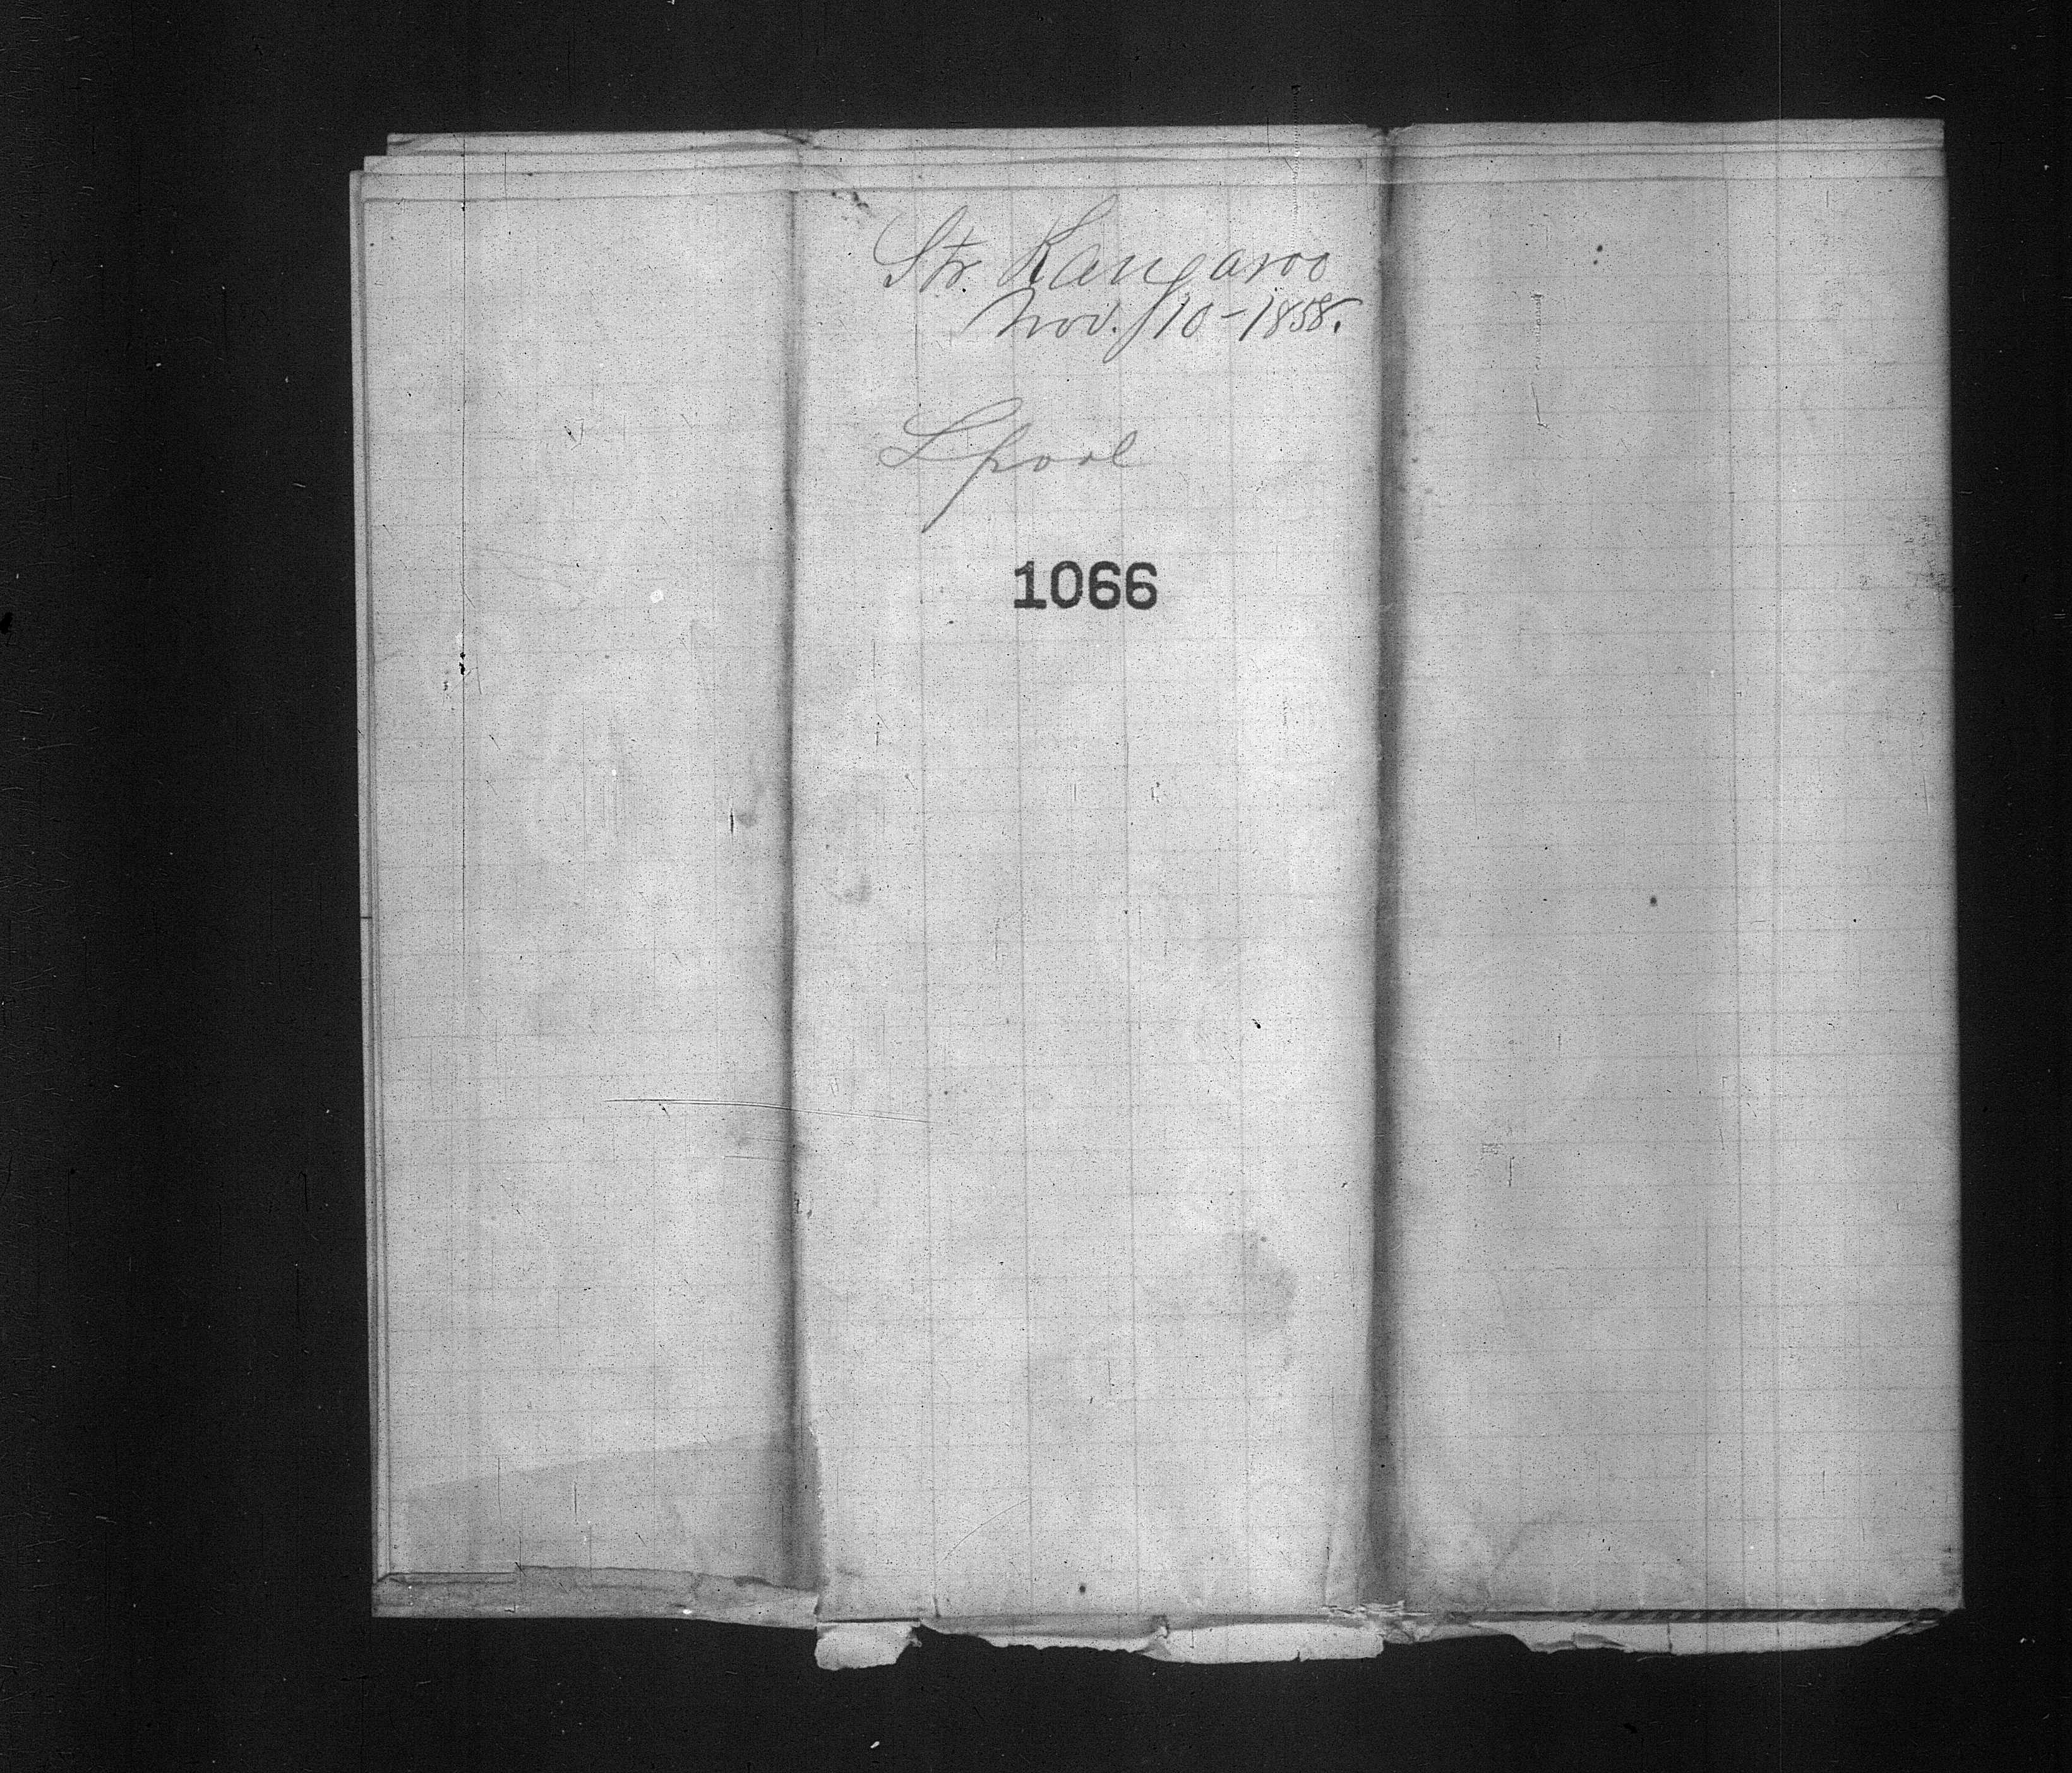 Str. Kangaroo
Nov. 10-1858.
Lpool
1066